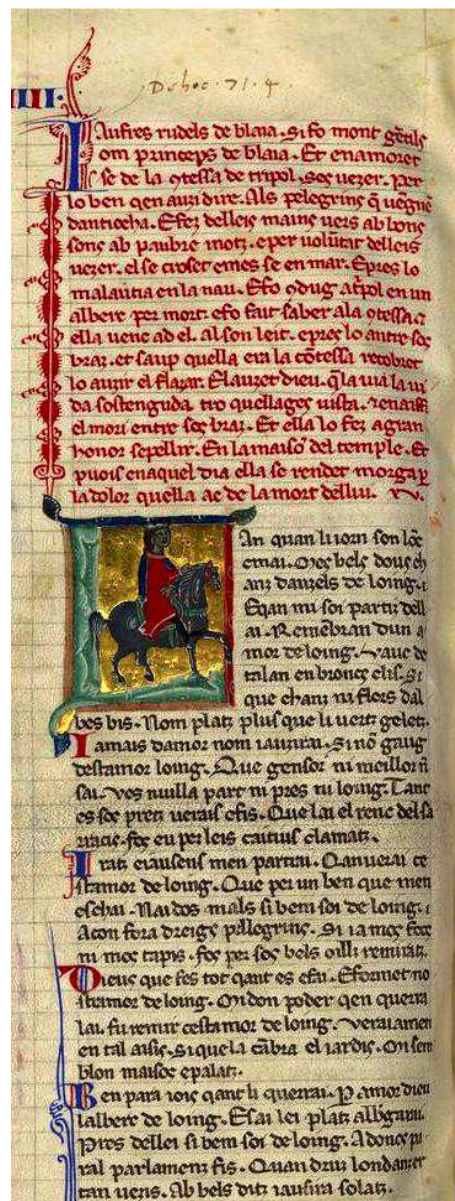 IIII.
Iaufres rudels de blaia. Si fo mont gētils
om princeps de blaia. Et enamoret
se de la ꝯtessa de tripol. ses uezer. Per
lo ben qen auzi dire. Als pelegrins q̄ uēgnē
dantiocha. E fez delleis mains uers ab bons
sons ab paubre motz. e per uolūtat delleis
uezer. el se croset e mes se en mar. E pres lo
malautia en la nau. E fo ꝯdug a tⁱpol en un
alberc per mort. e fo fait saber a la ꝯtessa
ella uenc ad el. al son leit. e pres lo antre sos
braz. et saup quella era la cōtessa recobret
lo auzir el flazar. E lauzet dieu. q̄la uia la ui
da sostenguda tro quellages uista.
el mori entre sos braz. Et ella lo fez a gran
honor sepellir. En la maisō del temple. Et
puois en aquel dia ella se rendet morga ꝑ
la dolor quella ac de la mort dellui.
Lan quan li iorn son lōc
e mai. Mes bels dous ch
anz dauzels de loing.
E qan mi soi partiz dell
ai. Remēbran dun a
mor de loing. Vauc de
talan enbroncs clis. Si
que chanz ni flors dal
bes bis. Nom platz plus que liuertz gelatz.
Iamais damor nom iauzirai. Si nō gaug
destamor loing. Que gensor ni meillor ñ
sai. Ves nuilla part ni pres ni loing. Tant
es sos pretz uerais e fis. Que lai el renc del sa
razis. fos eu per leis caitius clamatz.
Iratz e iausens men partrai. Qan uerai ce
stamor de loing. Que per un ben que men
eschai. Nai dos mals si bem soi de loing.
A con fora dreigs pellegrins. Si ia mos fotz
ni mos tapis. fos per sos bels oilli remiratz.
Dieus que fes tot qant es e fai. E formet no
stramor de loing. On don poder qen querra
lai. fu remir cestamor de loing. Veraiamen
en tal aisis. Si que la cābra el iardis. On sem
blon maisos e palatz.
Ben para iois qant li querrai. P amor dieu
lalberc de loing. E sai lei platz albgarai.
Pres dellei si bem soi de loing. A doncs pa
ral parlamenz fis. Quan druz londaner
tan ueris. Ab bels ditz iausira solatz.